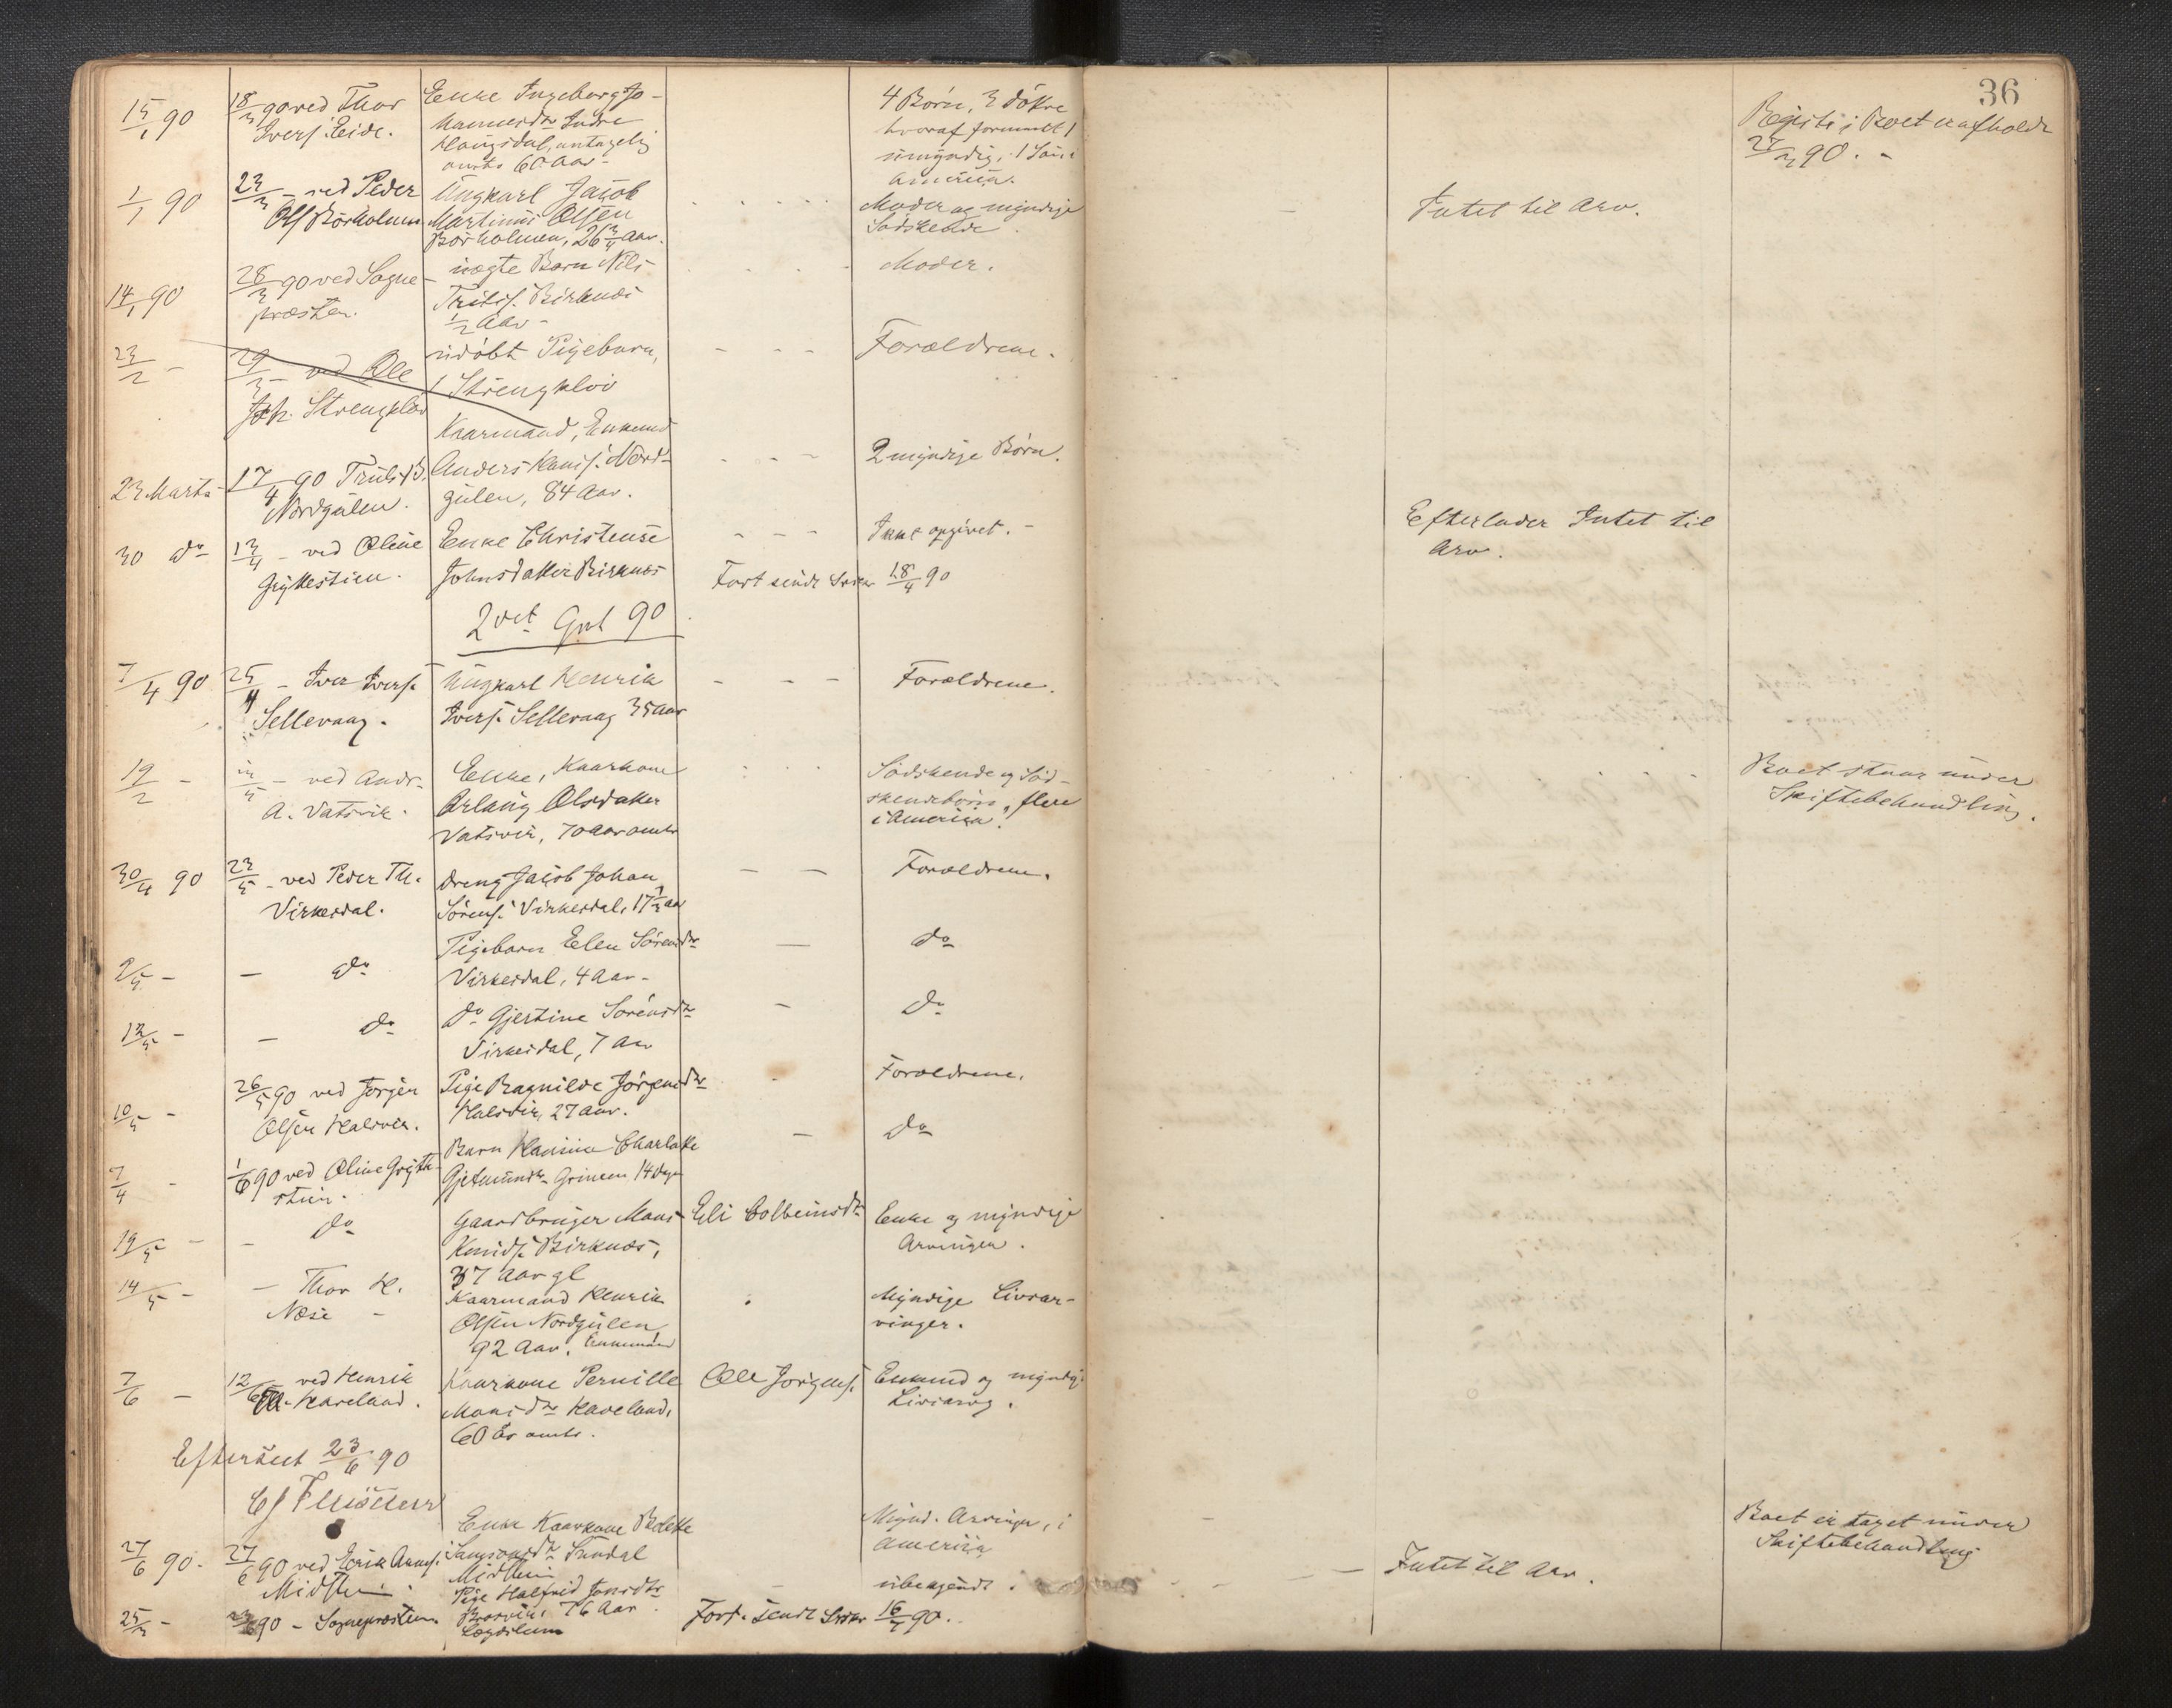 36
15/1 90
18/3 90 ved Thor
Ivers. Eide.
Enke Ingeborg Jo-
hannesdtr Indre
Haugsdal, antagelig
omtr 60 Aar -
4 Børn, 3 døttre
hvoraf formentl 1
umyndig, 1 Søn i
Amerika.
Registr i Boet er afholdt
27/3 90. -
1/1 90
23/3 - ved Peder
Ols Børholmen
Ungkarl Jakob
Martinus Olsen
Børholmen, 26 3/4 Aar.
Moder og myndige
Sødskende.
Intet til Arv.
14/1 90
28/3 90 ved Sogne-
præsten.
uægte Barn Nils
Birknes
1/2 Aar -
Moder.
23/2 -
29/3 - ved Ole
Joh. Strengklov
udøbt Pigebarn,
Strengklov
Forældrene.
23 Marts -
17/4 90 Truls B.
Nordgulen.
Kaarmand, Enkemd
Anders Hans. Nord-
gulen, 84 Aar.
2 myndige Børn.
30 do
13/4 - ved Oline
Gryttestien.
Enke Christense
Johnsdatter Birknes
Inns opgivet. -
Efterlader Intet til
Arv.
Fort sendt Sskr 18/4 90
2det Qrt 90
7/4 90
25/4 - Iver Ivers.
Sellevaag.
Ungkarl Henrik
Ivers. Sellevaag 35 Aar
Forældrene.
19/2 -
- ved Andr.
A. Vatsvik.
Enke, Kaarkone
Orlaug Olsdatter
Vatsvik, 70 Aar omtr
Sødskende og Sød-
skendebørn, flere
i Amerika.
Boet staar under
Skiftebehandling.
30/4 90
23/5 - ved Peder Th.
Virkesdal.
Dreng Jakob Johan
Sørens. Virkesdal, 17 1/2 Aar
Forældrene.
2/5 -
- do
Pigebarn Elen Sørensdtr
Virkesdal, 4 Aar -
do
12/5 -
- do
do Gjertine Sørensdtr
Virkesdal, 7 Aar
do
10/5 -
26/5 90 ved Jørgen
Olsen Halsvik.
Pige Ragnilde Jørgensdtr
Halsvik, 27 Aar.
Forældrene.
7/4 -
1/6 90 ved Oline Grytte-
stien.
Barn Hansine Charlotte
Gjetmundsdtr Grinen 14 Dage
do
19/5 -
- do
Gaardbruger Mons
Knuds. Birknes,
37 Aar gl
Eli Colbeinsdtr
Enke og myndige
Arvinger.
14/5 -
- Thor H.
Nese -
Kaarmand Henrik
Olsen Nordgulen
92 Aar. Enkemand
Myndige Livsar-
vinger.
7/6 -
12/6 - ved Henrik
Haveland.
Kaarkone Pernille
Monsdtr Haveland,
60 År omtr.
Ole Jørgens.
Enkemd og myndige
Livsarvg.
Efterseet 23/6 90
27/6 90.
27/6 90 ved Erik Arnes.
Midtun.
Enke Kaarkone Bolette
Samsonsdtr Sundal
Midtun
Mynd. Arvinger, i
Amerika
Boet er taget under
Skiftebehandling
25/3 -
90 - Sognepræsten
Pige Halfrid Jonsdtr
Brosvik, 76 Aar.
Lægdslem
ubekjendt.
Intet til Arv.
Fort. sendt Sskr 16/7 90.